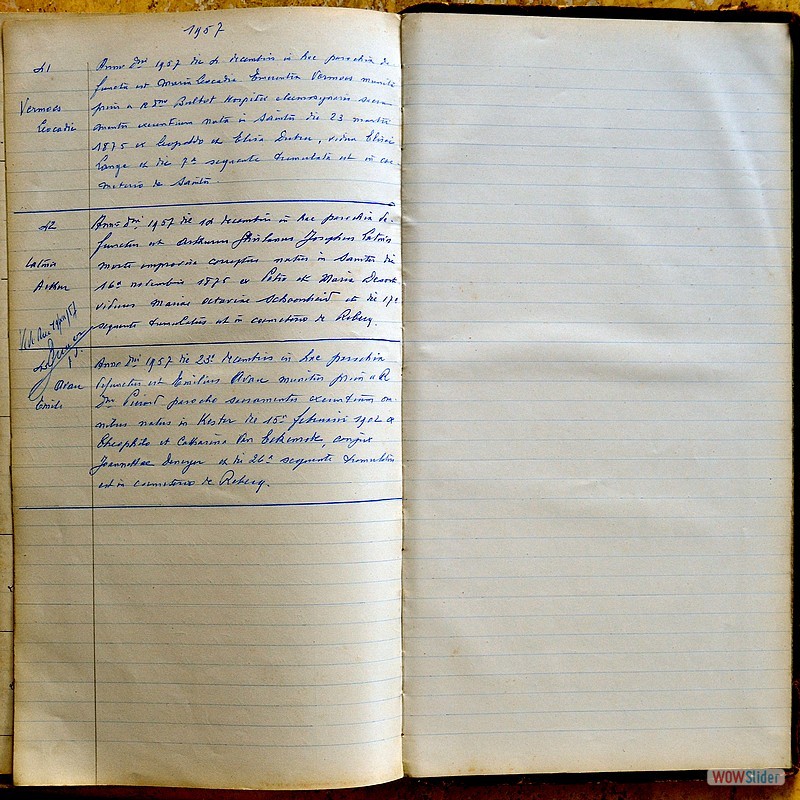 1957
41
Vermoes
Leocadie
Anno Dni 1957 die 4 decembris in hac parochia de-
functa est Maria Leocadia Emerentia Vermoes munita
prius a R Dno Bultot Hospitii eleemosynario sacra-
mentis exeuntium nata in Saintes die 23 martii
1875 ex Leopoldo et Elisa , vidua Elisaei
Lange et die 7a sequente tumulata est in coe-
meterio de Saintes.
42
Latinis
Arthur
Anno Dni 1957 die 14 decembris in hac parochia de-
functus est Arthurus Ghislanus Josephus Latinis
morte improvisa correptus natus in Saintes die
16a novembris 1875 ex Petro et Maria
viduus Mariae Octaviae et die 17a
sequente tumulatus est in coemeterio de Rebecq.
43 Avau
Emile
Anno Dni 1957 die 23a decembris in hac parochia
defunctus est Emilius Avau munitus prius a R
Dno Pierard parocho sacramentis exeuntium om-
nibus natus in Kester die 15a februarii 1902 ex
Theophilo et Catharina Van , conjux
Joannettae Deneyer et die 26a sequente tumulatus
est in coemeterio de Rebecq.
WOWSlider